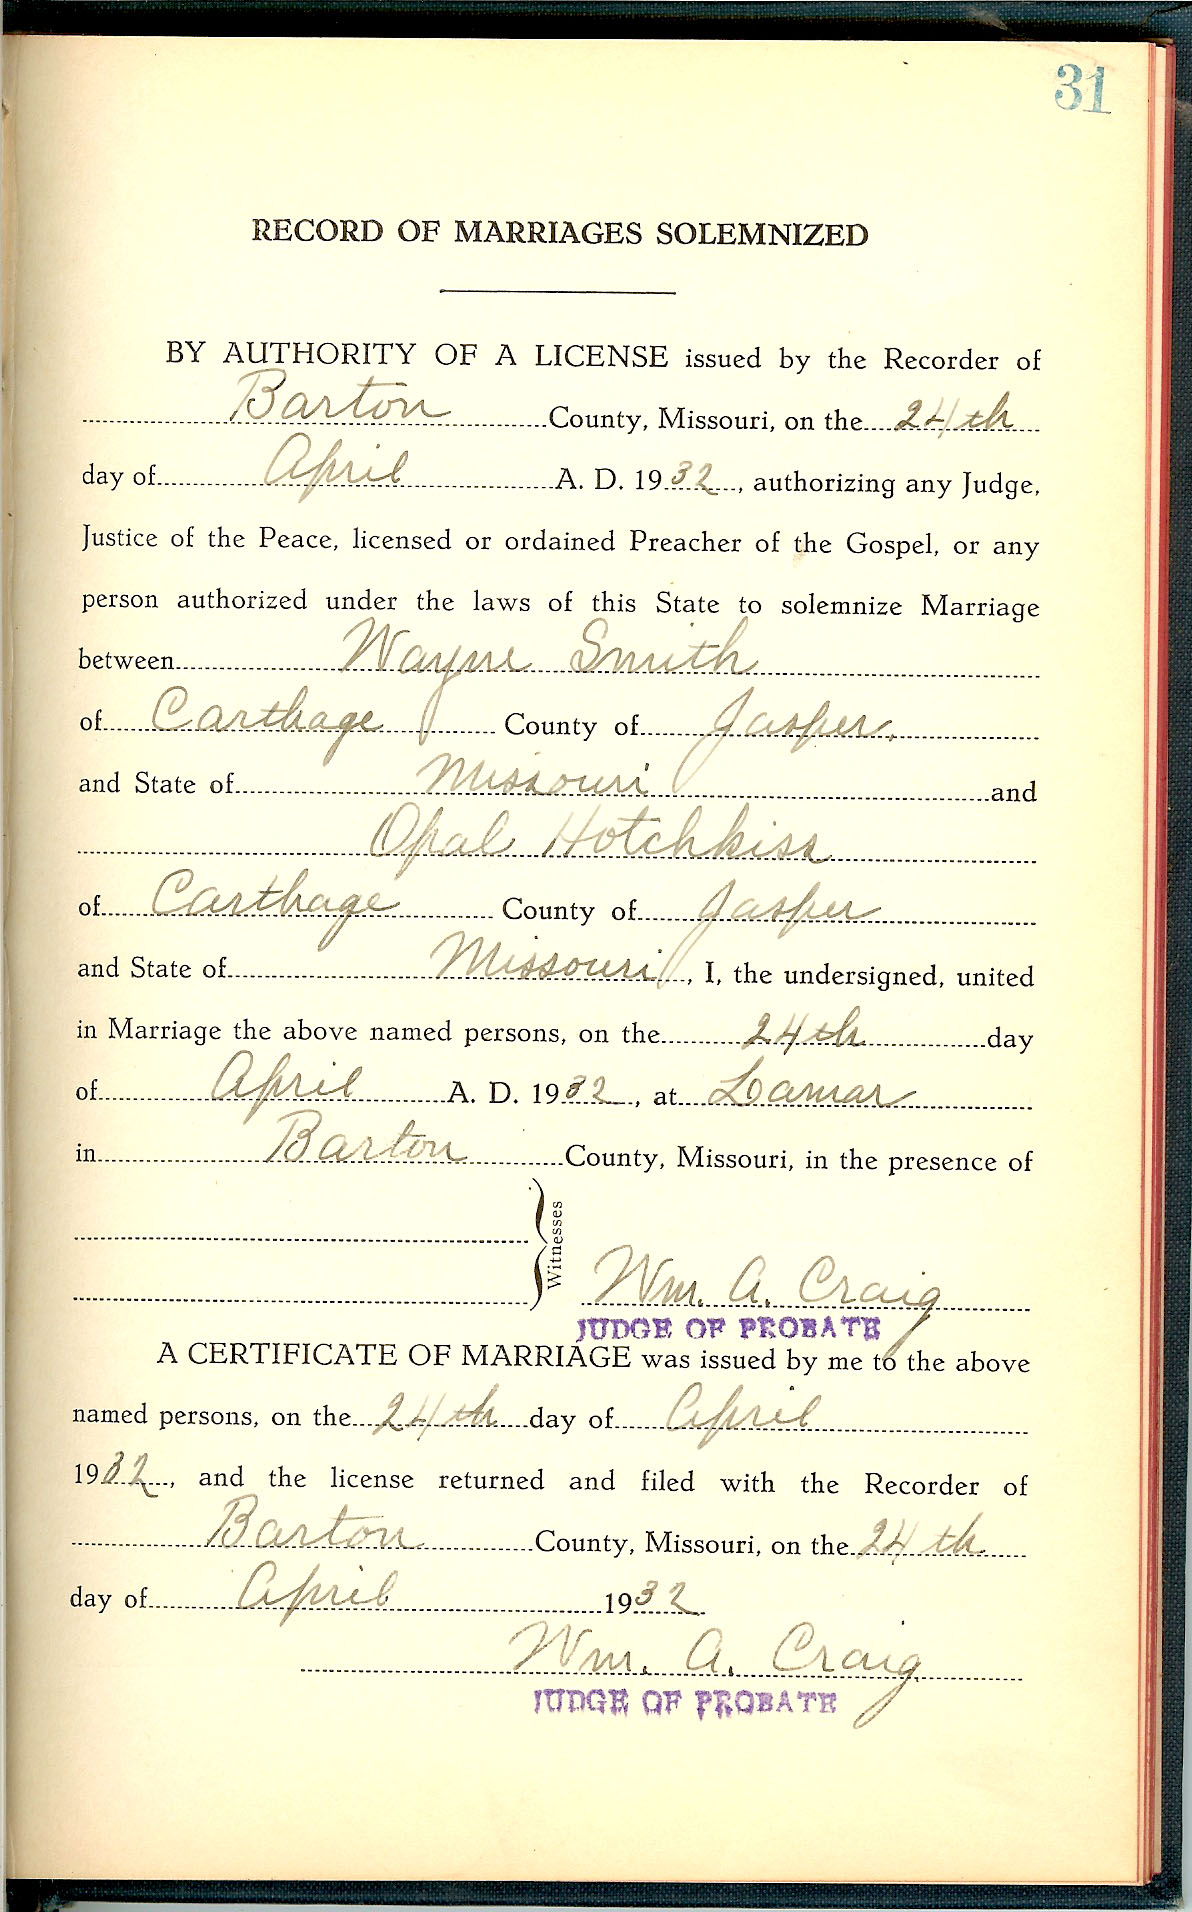 31
RECORD OF MARRIAGES SOLEMNIZED
BY AUTHORITY OF A LICENSE issued by the Recorder of
Barton County, Missouri, on the 24th
day of April A. D. 1932, authorizing any Judge,
Justice of the Peace, licensed or ordained Preacher of the Gospel, or any
person authorized under the laws of this State to solemnize Marriage
between Wayne Smith
of Carthage County of Jasper,
and State of Missouri and
Opal Hotchkiss
of Carthage County of Jasper
and State of Missouri, I, the undersigned, united
in Marriage the above named persons, on the 24th day
of April A. D. 1932, at Lamar
in Barton County, Missouri, in the presence of
Witnesses
Wm. A. Craig
JUDGE OF PROBATE
A CERTIFICATE OF MARRIAGE was issued by me to the above
named persons, on the 24th day of April
1932, and the license returned and filed with the Recorder of
Barton County, Missouri, on the 24th
day of April 1932
Wm. A. Craig
JUDGE OF PROBATE